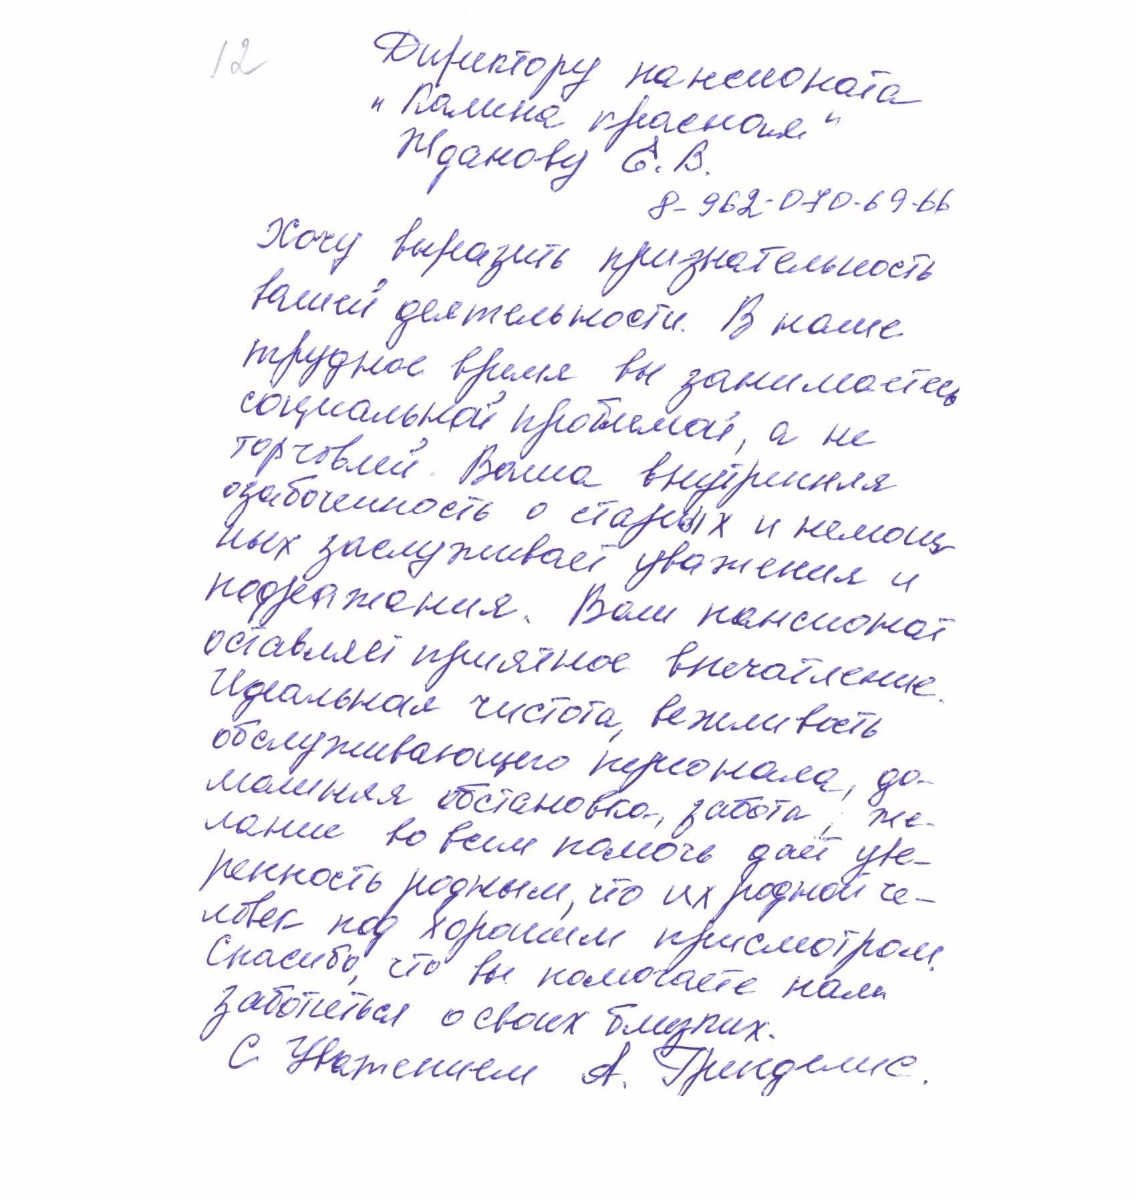 12
Директору пансионата
"Калина красная"
Жданову Е. В.
8-962-070-69-66
Хочу выразить признательность
вашей деятельности. В наше
трудное время вы занимаетесь
социальной проблемой, а не
торговлей. Ваша внутренняя
озабоченность о старых и немощ
ных заслуживает уважения и
подражания. Ваш пансионат
оставляет приятное впечатление.
Идеальная чистота, вежливость
обслуживающего персонала, до-
машняя обстановка, забота, же-
лание во всем помочь дает уве-
ренность родным, что их родной че-
ловек под хорошим присмотром.
Спасибо, что вы помогаете нам
заботиться о своих близких.
С Уважением А.